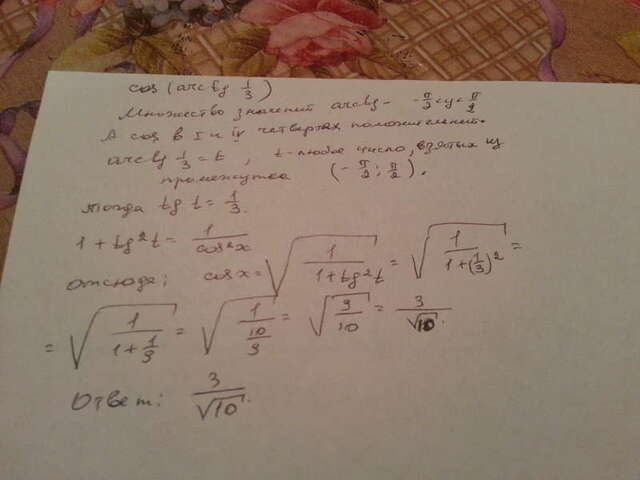 cos (arctg 1/3)
Множество значений arctg - -π/2<y<π/2
А cos в I и IV четвертях положительный.
arctg 1/3 = t, t - любое число, взятых из
промежутка (-π/2; π/2).
Тогда tg t = 1/3.
1 + tg²t = 1/cos²x
отсюда; cos x = √(1/(1+tg²t)) = √(1/(1+(1/3)²)) =
= √(1/(1+1/9)) = √(1/(10/9)) = √(9/10) = 3/√10.
Ответ: 3/√10.